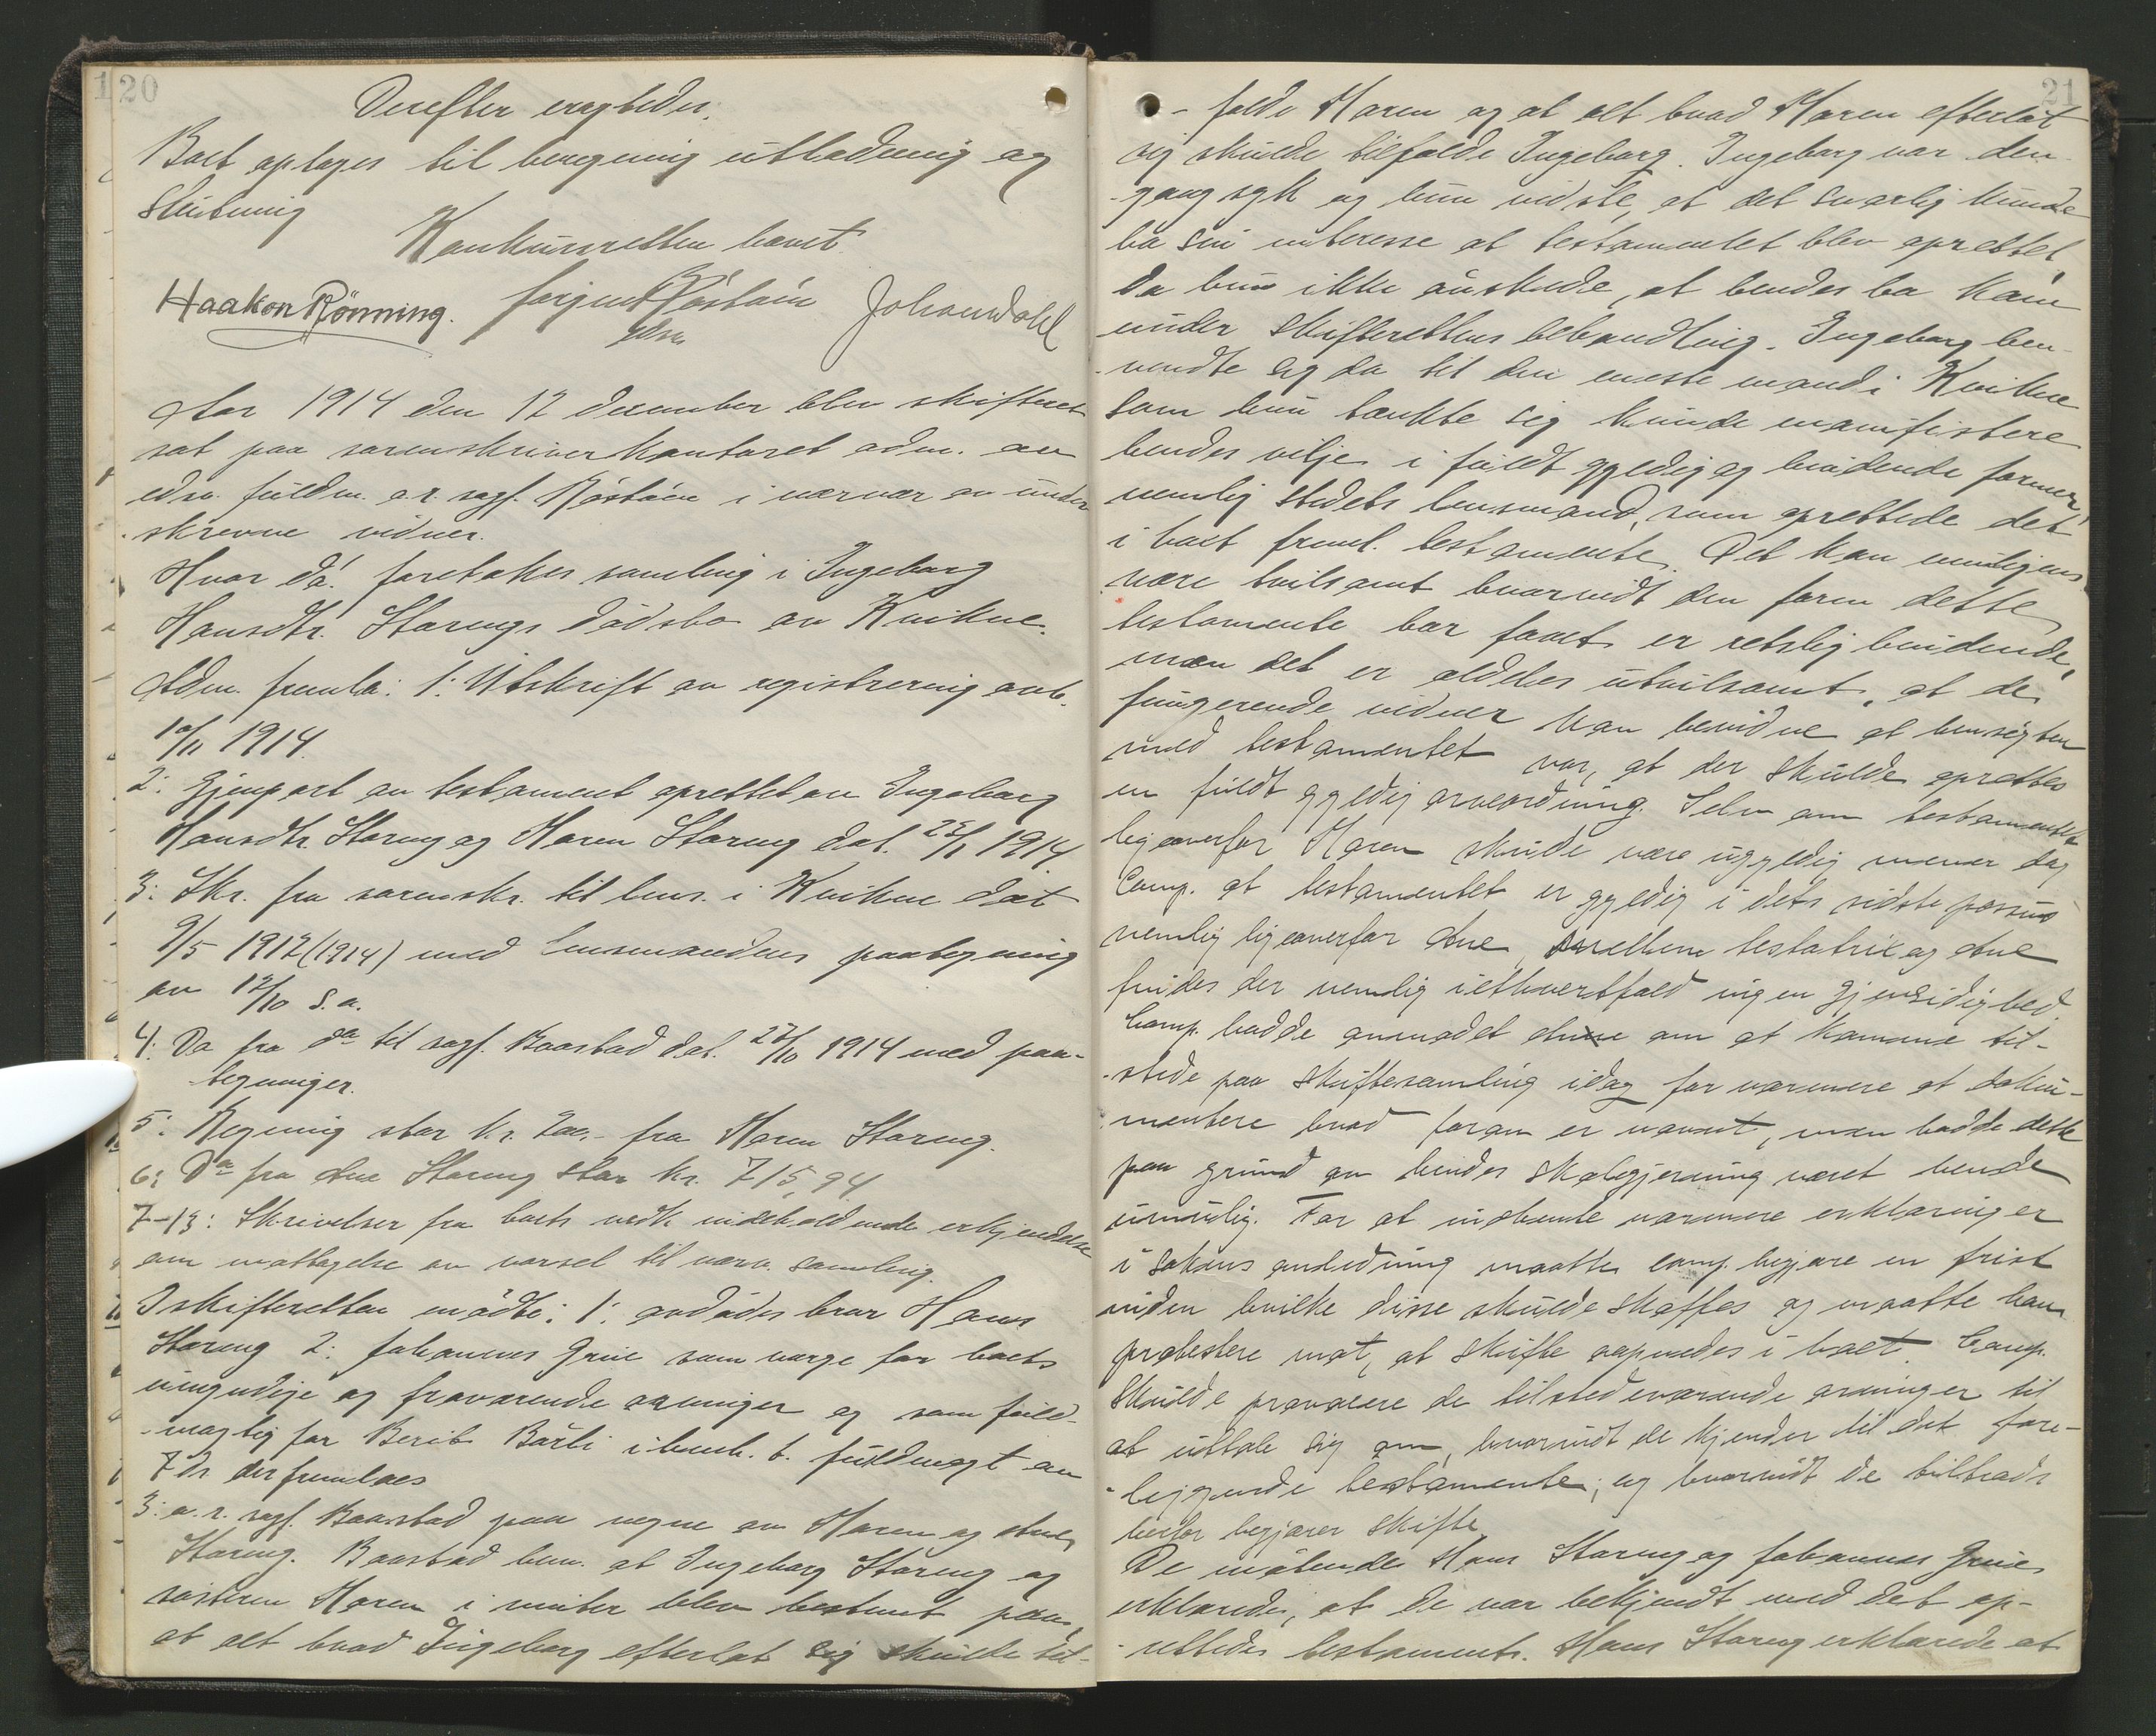 20
Derefter eragtedes:
Boet optages til beregning utlodning og
Slutning
Konkursretten hævet.
Haakon Rönning. Jörgen Röstöen Johan Dahl
edsv.
Aar 1914 den 12 december blev skifteret
sat paa sorenskriverkontoret adm. av
edsv. fuldm. o.r. sagf. Röstöen i nærvær av under
skrevne vidner.
Hvor da! foretokes samling i Ingeborg
Hansdtr. Storengs dödsbo av Kvikne.
Adm. freml: 1: Utskrift av registrering avh.
10/11 1914.
2: Gjenpart av testament oprettet av Ingeborg
Hansdtr Storeng og Maren Storeng dat. 25/1 1914
3: Skr. fra sorenskr. til lens. i Kvikne dat
9/5 1912 (1914) med lensmandens paategning
av 12/10 s.a.
4: Do fra do til sagf. Baastad dat. 27/10 1914 med paa-
tegninger.
5: Regning stor kr. 200.- fra Maren Storeng.
6: Do fra Ane Storeng stor kr. 715,94
7-13: Skrivelser fra boets vedk. indeholdende erkjendelse
om mottagelse av varsel til nærv. samling.
I skifteretten mödte: 1: avdödes bror Hans
Storeng 2: Johannes Grue som verge for boets
umyndige og fraværende arvinger og som fuld-
mægtig for Berit Bärli i henh. t. fuldmagt av
7 ds der fremlaes
3: o.r. sagf. Baastad paa vegne av Maren og Ane
Storeng. Baastad bem. at Ingeborg Storeng og
söstern Maren i vinter blev bestemt paa,
at alt hvad Ingeborg efterlot sig skulde til-
21
- falde Maren og at alt hvad Maren efterlot
sig skulde tilfalde Ingeborg. Ingeborg var den-
gang syk og hun vidste, at det snarlig kunde
ha sin interesse at testamentet blev oprettet
da hun ikke önskede, at hendes bo kom
under skifterettens behandling. Ingeborg hen-
vendte sig da til den eneste mand i Kvikne
som hun tænkte sig kunde manifistere
hendes vilje i fuldt gyldig og bindende former,
nemlig stedets lensmand, som oprettede det
i boet freml. testamente. Det kan muligens
være tvilsomt hvorvidt den form dette
testamente har faaet er retslig bindende,
men det er aldeles utvilsomt, at de
fungerende vidner kan bevidne at hensigten
med testamentet var, at der skulde oprettes
en fuldt gyldig arveordning. Selv om testamentet
ligeoverfor Maren skulde være ugyldig mener dog
Comp. at testamentet er gyldig i dets sidste passus
nemlig ligeoverfor Ane, mellem testatrix og Ane
findes der nemlig i ethvertfald ingen gjensidighed.
Comp. hadde anmodet Ane om at komme til-
stede paa skiftesamling idag for nærmere at doku-
mentere hvad foran er nævnt, men hadde dette
paa grund av hendes skolegjerning været hende
umulig. For at indhente nærmere erklæringer
i sakens anledning maatte comp. begjære en frist
inden hvilke disse skulde skaffes og maatte han
protestere mot, at skifte aapnedes i boet. Comp.
skulde provocere de tilstedeværende arvinger til
at uttale sig om, hvorvidt de kjender til det fore-
liggende testamente, og hvorvidt de tiltrods
herfor begjærer skifte
De mötende Hans Storeng og Johannes Grue
erklærede, at de var bekjendt med det op-
rettedes testamente. Hans Storeng erklærede at